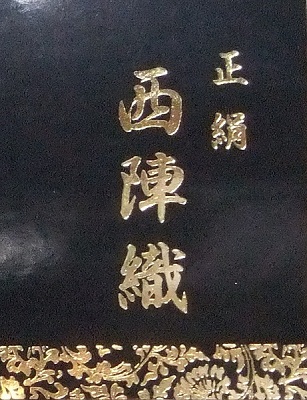 正絹
西陣織